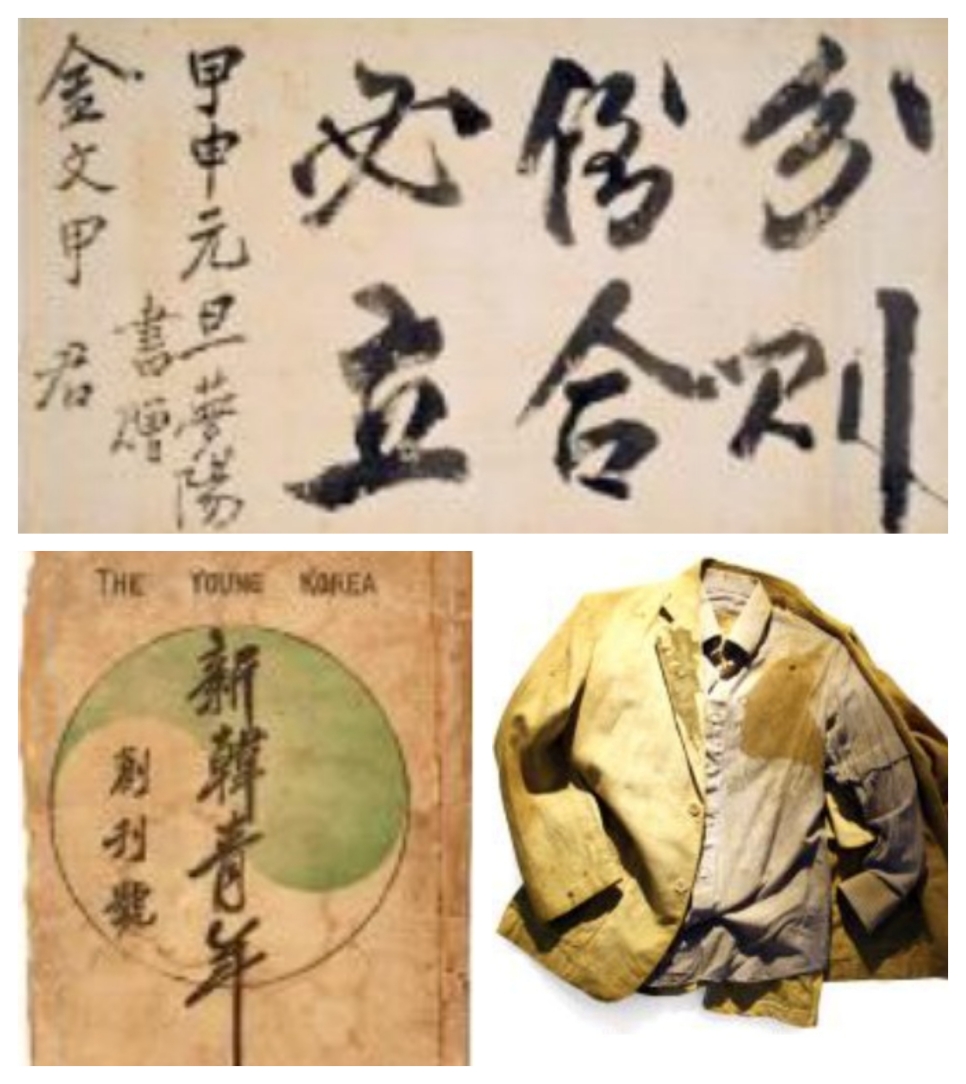 分則
倒合
必立
甲申元旦夢陽
書贈
金文甲君
THE YOUNG KOREA
新韓青年
創刊號